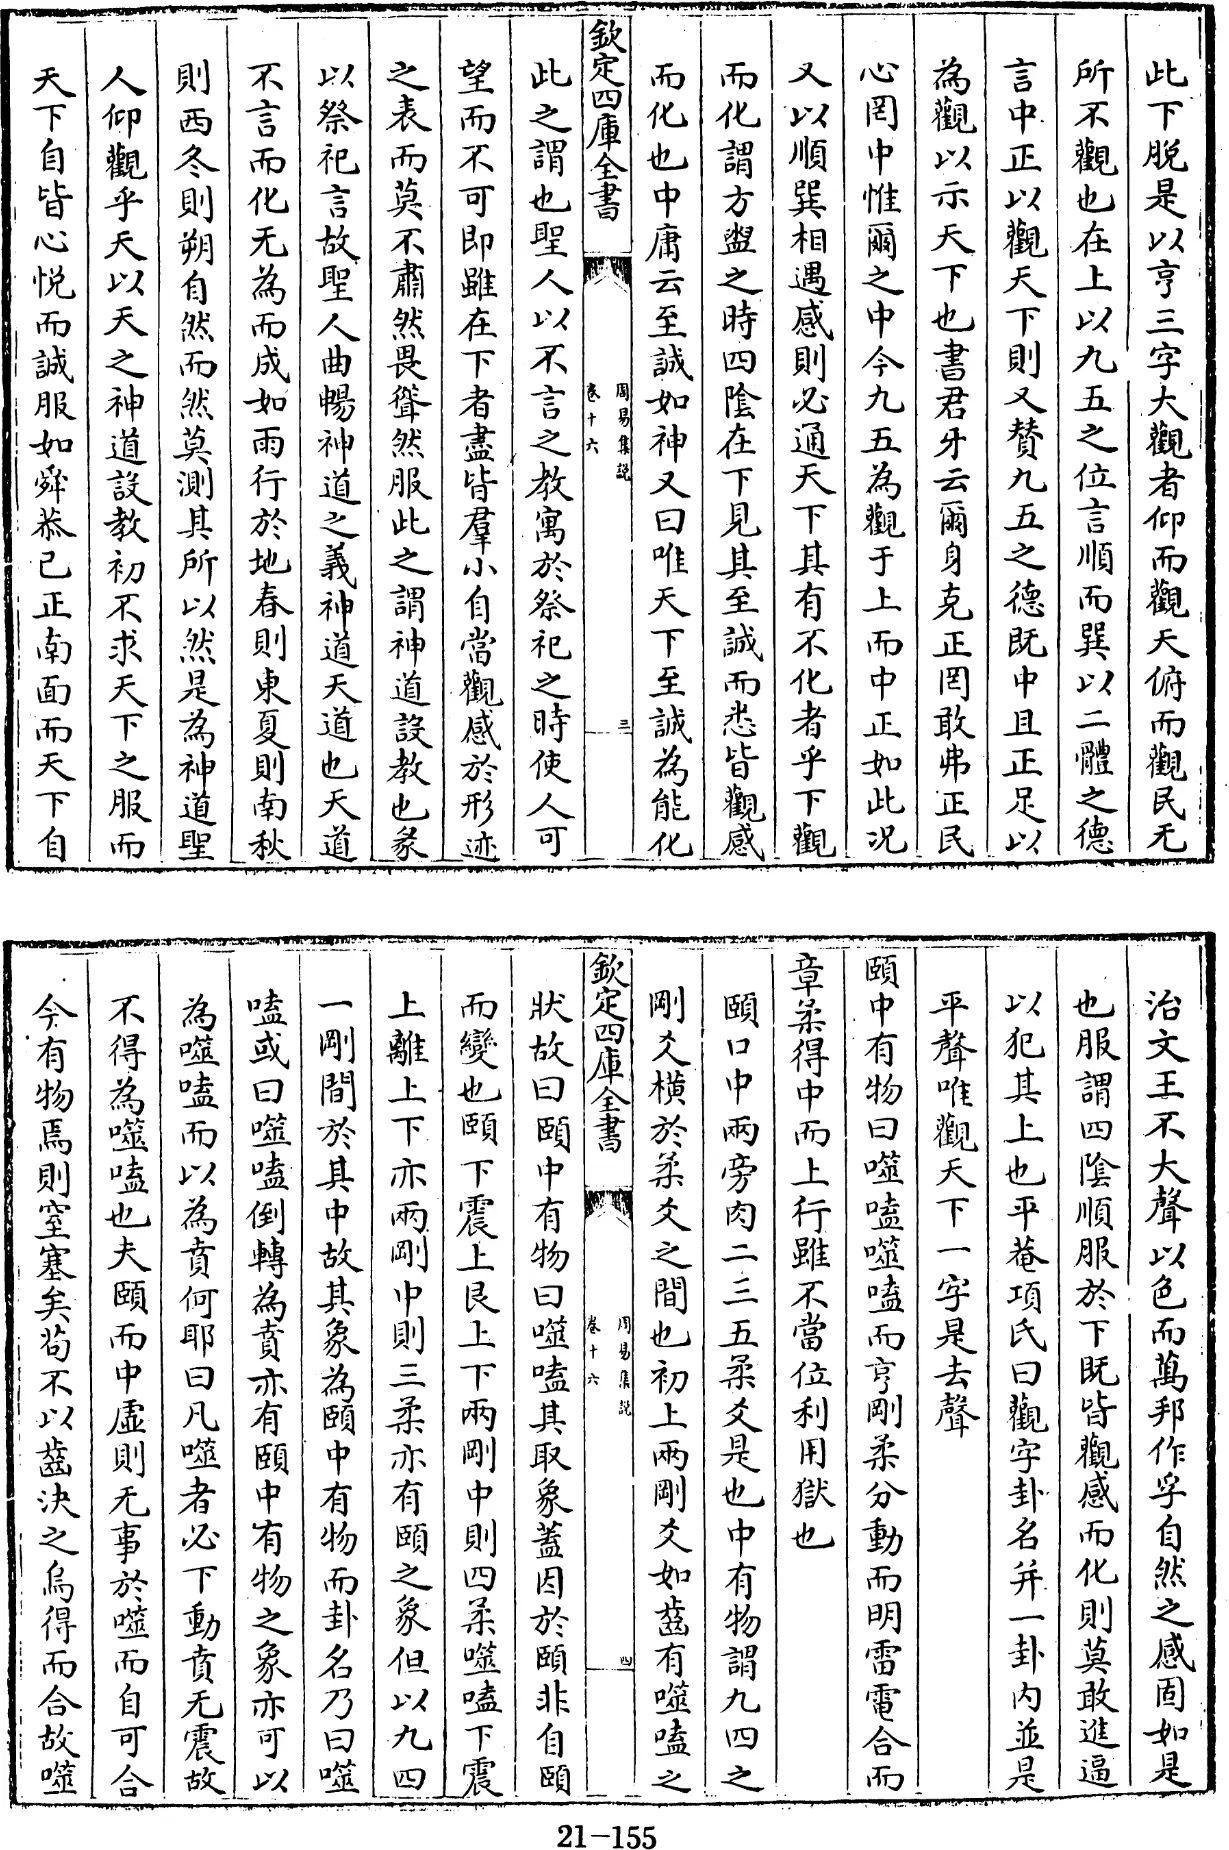 此下脱是以亨三字大觀者仰而觀天俯而觀民无
所不觀也在上以九五之位言順而巽以二體之德
言中正以觀天下則又賛九五之德既中且正足以
為觀以示天下也書君牙云爾身克正罔敢弗正民
心罔中惟爾之中今九五為觀于上而中正如此况
又以順巽相遇感則必通天下其有不化者乎下觀
而化謂方盥之時四陰在下見其至誠而悉皆觀感
而化也中庸云至誠如神又曰唯天下至誠為能化
欽定四庫全書
周易集説
卷十六
三
此之謂也聖人以不言之教寓於祭祀之時使人可
望而不可即雖在下者盡皆羣小自當觀感於形迹
之表而莫不肅然畏聳然服此之謂神道設教也彖
以祭祀言故聖人曲暢神道之義神道天道也天道
不言而化无為而成如雨行於地春則東夏則南秋
則西冬則朔自然而然莫測其所以然是為神道聖
人仰觀乎天以天之神道設教初不求天下之服而
天下自皆心悦而誠服如舜恭己正南面而天下自
治文王不大聲以色而萬邦作孚自然之感固如是
也服謂四陰順服於下既皆觀感而化則莫敢進逼
以犯其上也平菴項氏曰觀字卦名并一卦内並是
平聲唯觀天下一字是去聲
頤中有物曰噬嗑噬嗑而亨剛柔分動而明雷電合而
章柔得中而上行雖不當位利用獄也
頤口中兩旁肉二三五柔爻是也中有物謂九四之
剛爻橫於柔爻之間也初上兩剛爻如齒有噬嗑之
欽定四庫全書
周易集説
卷十六
四
狀故曰頤中有物曰噬嗑其取象蓋因於頤非自頤
而變也頤下震上艮上下兩剛中則四柔噬嗑下震
上離上下亦兩剛中則三柔亦有頤之象但以九四
一剛間於其中故其象為頤中有物而卦名乃曰噬
嗑或曰噬嗑倒轉為賁亦有頤中有物之象亦可以
為噬嗑而以為賁何耶曰凡噬者必下動賁无震故
不得為噬嗑也夫頤而中虛則无事於噬而自可合
今有物焉則窒塞矣茍不以齒決之烏得而合故噬
21-155